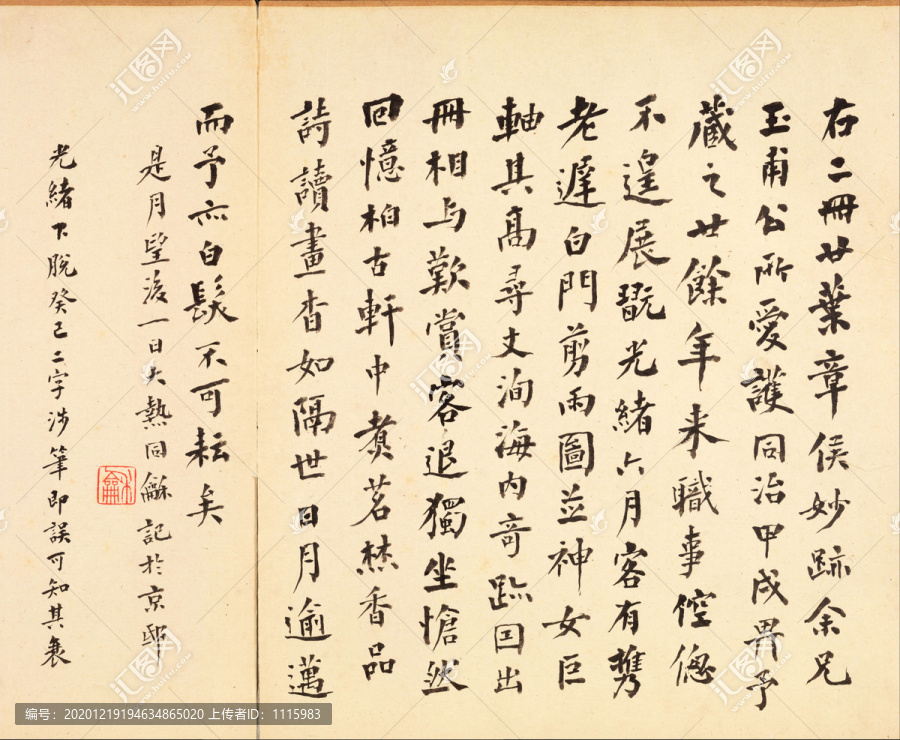 右二冊廿葉章侯妙跡余兄
玉甫公所愛護同治甲戌畀予
藏之廿餘年来職事倥偬
不遑展翫光緒六月客有攜
老遲白門剪雨圖並神女巨
軸其高尋丈洵海内奇跡因出
冊相与歎賞客退獨坐愴然
回憶柏古軒中煑茗焚香品
詩讀畫杳如隔世日月逾邁
而予亦白髮不可耘矣
是月朢後一日大熱同龢記於京邸
光緒下脫癸巳二字涉筆即誤可知其衰
汇图网
www.huitu.com
编号：20201219194634865020 上传者ID：1115983